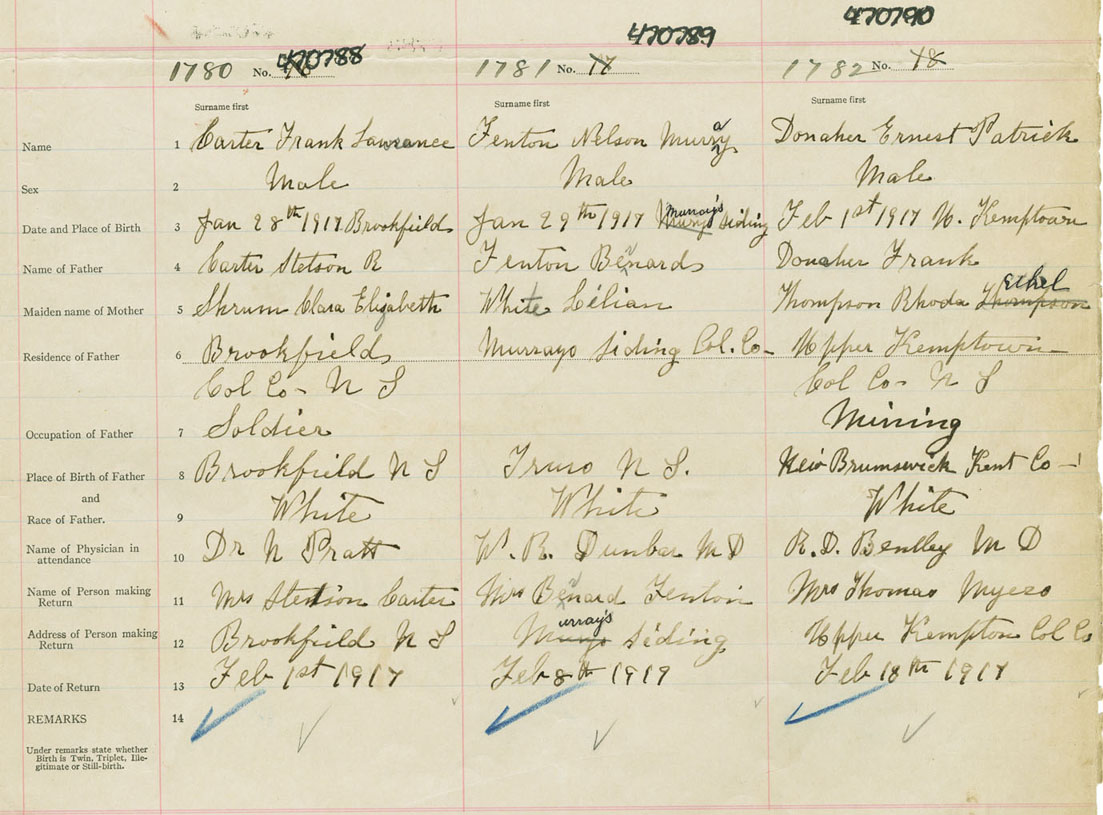 470788 470789 470790
1780 No. 1781 No. 17 1782 No. 18
Surname first Surname first Surname first
Name 1 Carter Frank Lawrance Fenton Nelson Murray Donaher Ernest Patrick
Sex 2 Male Male Male
Date and Place of Birth 3 Jan 28th 1917 Brookfield Jan 29th 1917 Murray's Siding Feb 1st 1917 U. Kemptown
Name of Father 4 Carter Stetson R Fenton Benard Donaher Frank
Maiden name of Mother 5 Skrum Clara Elizabeth White Lilian Thompson Rhoda Thompson Ethel
Residence of Father 6 Brookfield Murrays Siding Col. Co- Upper Kemptown
Col Co- N S Col Co- N S
Occupation of Father 7 Soldier Mining
Place of Birth of Father 8 Brookfield N S Truro N S. New Brumswick Kent Co -
and
Race of Father. 9 White White White
Name of Physician in attendance 10 Dr N Pratt W. R. Dunbar M D R. D. Bentley M D
Name of Person making Return 11 Mrs Stetson Carter Mrs Benard Fenton Mrs Thomas Myers
Address of Person making Return 12 Brookfield N S Murray's Siding Upper Kempton Col Co
Date of Return 13 Feb 1st 1917 Feb 8th 1917 Feb 18th 1917
REMARKS 14
Under remarks state whether
Birth is Twin, Triplet, Ille-
gitimate or Still-birth.